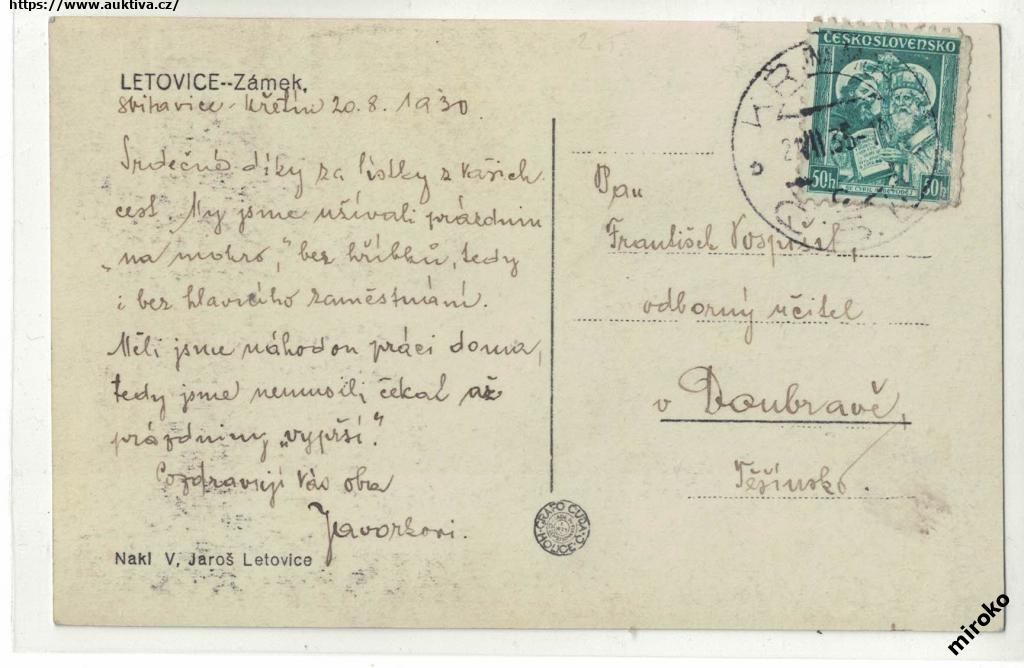 https://www.auktiva.cz/
LETOVICE--Zámek,
Svitavice - Křetín 20. 8. 1930
Srdečné díky za lístky z Vašich
cest. My jsme užívali prázdnin
"na mokro," bez hříbků, tedy
i bez hlavního zaměstnání.
Měli jsme náhodou práci doma,
tedy jsme nemusili čekal až
prázdniny "vyprší".
Pozdravují Vás oba
Javorkovi.
Nakl V, Jaroš Letovice
GRAFO ČUDA HOLICE
ČESKOSLOVENSKO
50h 50h
Pan
František Vospisil,
odborný učitel
v Doubravě,
Těšínsko.
miroko